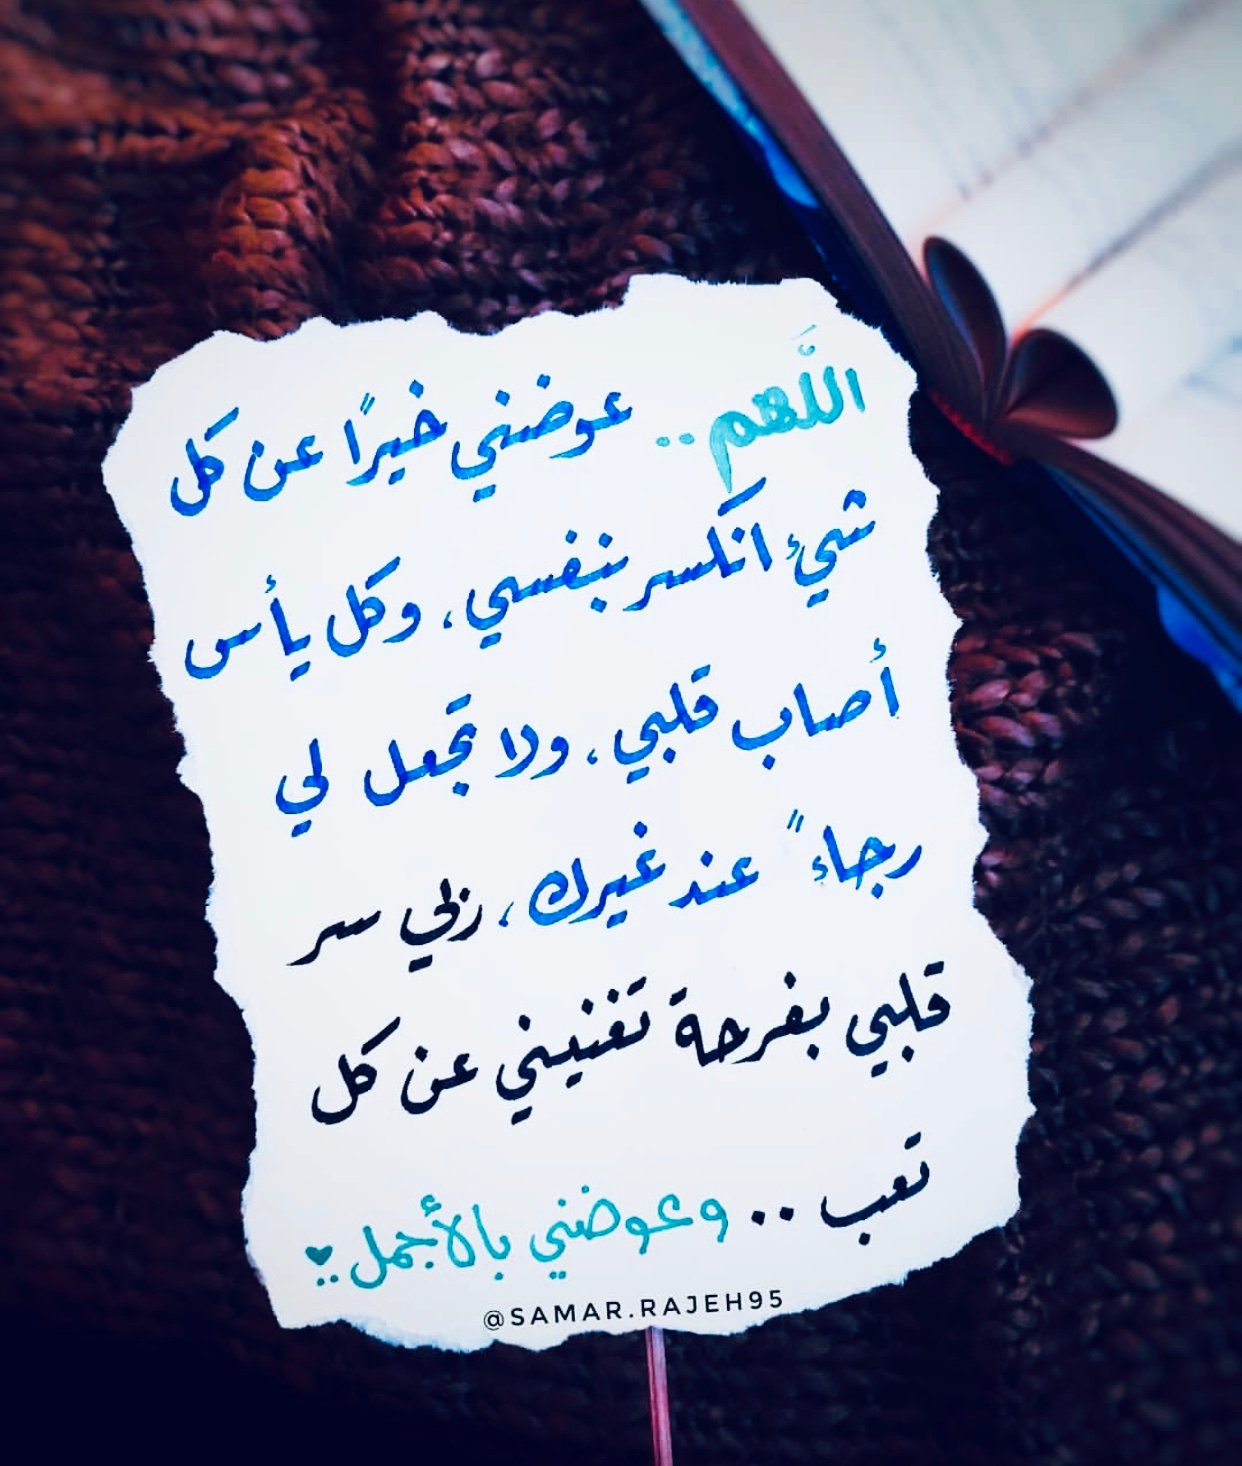 اللَّهم .. عوضني خيرًا عن كل
شيءٍ انكسر بنفسي، وكل يأس
أصاب قلبي، ولا تجعل لي
رجاءً عند غيرك، ربي سر
قلبي بفرحة تغنيني عن كل
تعب .. وعوضني بالأجمل..♥
@SAMAR.RAJEH95